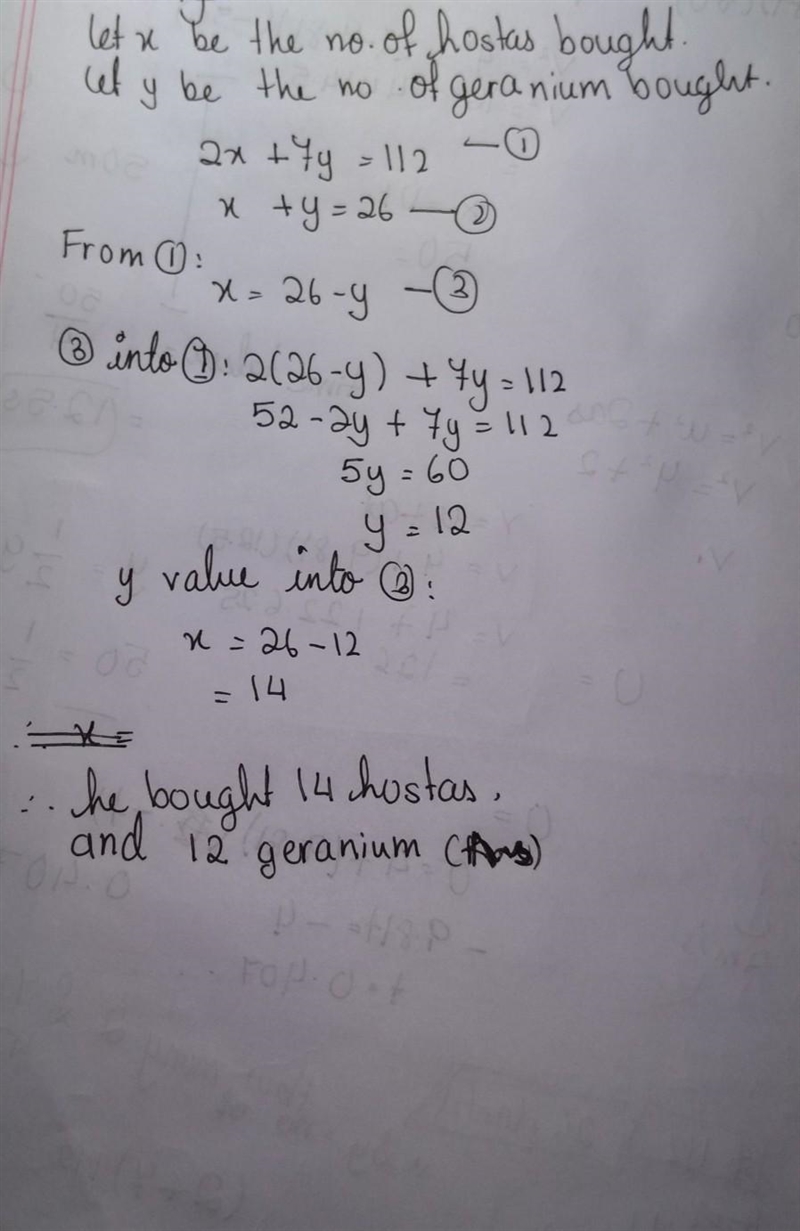 let x be the no. of hostas bought.
let y be the no. of geranium bought.
2x + 7y = 112 — ①
x + y = 26 — ②
From ①:
x = 26 - y — ③
③ into ①: 2(26 - y) + 7y = 112
52 - 2y + 7y = 112
5y = 60
y = 12
y value into ③:
x = 26 - 12
= 14
∴ x =
∴ he bought 14 hostas,
and 12 geranium (Ans)